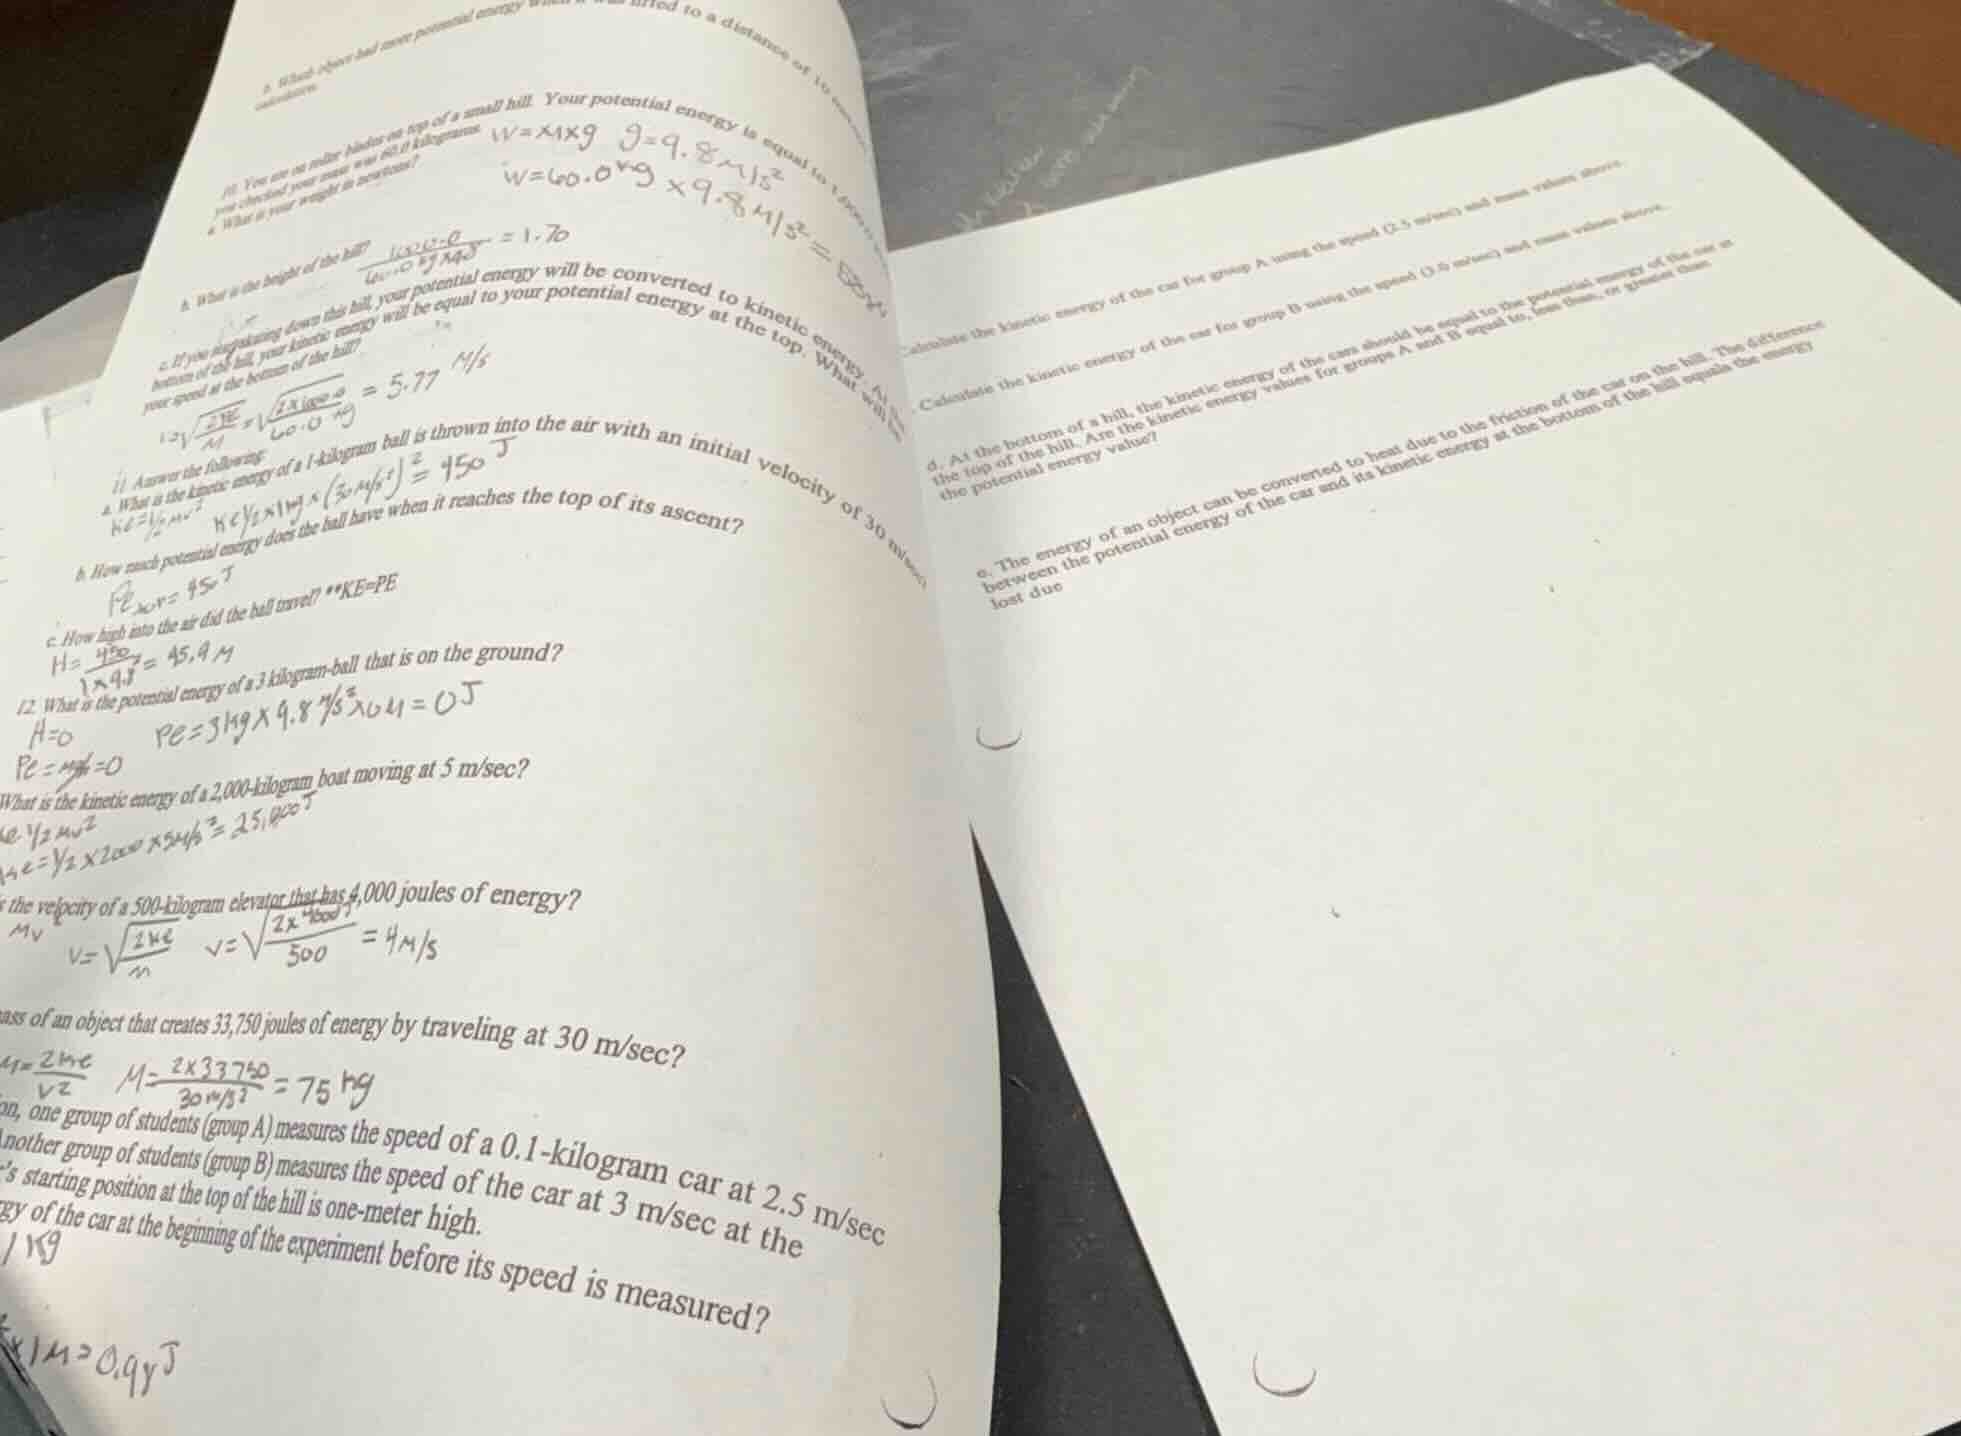 b. Which object had more potential energy when it was lifted to a distance of 10
calculation.
10. You are on roller blades on top of a small hill. Your potential energy is equal to 1,000.0
you checked your mass was 60.0 kilograms.
a. What is your weight in newtons?
W=M×g g=9.8M/s²
W=60.0kg ×9.8M/s²=
b. What is the height of the hill?
= 1.70
c. If you start down this hill, your potential energy will be converted to kinetic energy. At the
bottom of the hill, your kinetic energy will be equal to your potential energy at the top. What will be
your speed at the bottom of the hill?
= 5.77 M/s
11. Answer the following:
a. What is the kinetic energy of a 1-kilogram ball is thrown into the air with an initial velocity of 30 m/sec?
Ke=1/2MV² Ke1/2×1kg×(30M/s²)²=450 J
b. How much potential energy does the ball have when it reaches the top of its ascent?
= 450 J
c. How high into the air did the ball travel? **KE=PE
H=450/1×9.8=45.9M
12. What is the potential energy of a 3 kilogram-ball that is on the ground?
H=0 Pe=3kg×9.8M/s²×0M=0J
Pe=mgh=0
What is the kinetic energy of a 2,000-kilogram boat moving at 5 m/sec?
1/2MV²
Ke=1/2×2000×5M/s²=25,000J
the velocity of a 500-kilogram elevator that has 4,000 joules of energy?
MV V=√2Ke/m V=√2×4000J/500=4M/s
of an object that creates 33,750 joules of energy by traveling at 30 m/sec?
M=2Ke/V2 M=2×33750/30m/s²=75kg
one group of students (group A) measures the speed of a 0.1-kilogram car at 2.5 m/sec
Another group of students (group B) measures the speed of the car at 3 m/sec at the
's starting position at the top of the hill is one-meter high.
of the car at the beginning of the experiment before its speed is measured?
1 Kg
×1M=0.98J
Calculate the kinetic energy of the car for group A using the speed (2.5 m/sec) and mass values above.
Calculate the kinetic energy of the car for group B using the speed (3.0 m/sec) and mass values above.
d. At the bottom of a hill, the kinetic energy of the cars should be equal to the potential energy of the car at
the top of the hill. Are the kinetic energy values for groups A and B equal to, less than, or greater than
the potential energy value?
e. The energy of an object can be converted to heat due to the friction of the car on the hill. The difference
between the potential energy of the car and its kinetic energy at the bottom of the hill equals the energy
lost due